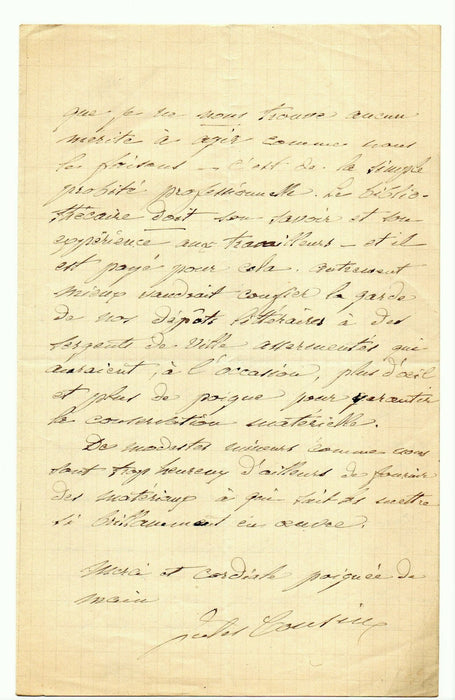 que je ne nous trouve aucun
mérite à agir comme nous
le faisons — c'est de la simple
probité professionnelle. Le biblio-
thécaire doit son savoir et son
expérience aux travailleurs — et il
est payé pour cela. autrement
mieux vaudrait confier la garde
de nos dépôts littéraires à des
sergents de ville assermentés qui
auraient, à l'occasion, plus d'œil
et plus de poigne pour garantir
la conservation matérielle.
De modestes mineurs comme nous
sont trop heureux d'ailleurs de fournir
des matériaux à qui sait les mettre
si brillamment en œuvre.
Merci et cordiale poignée de
main
Jules Cousin